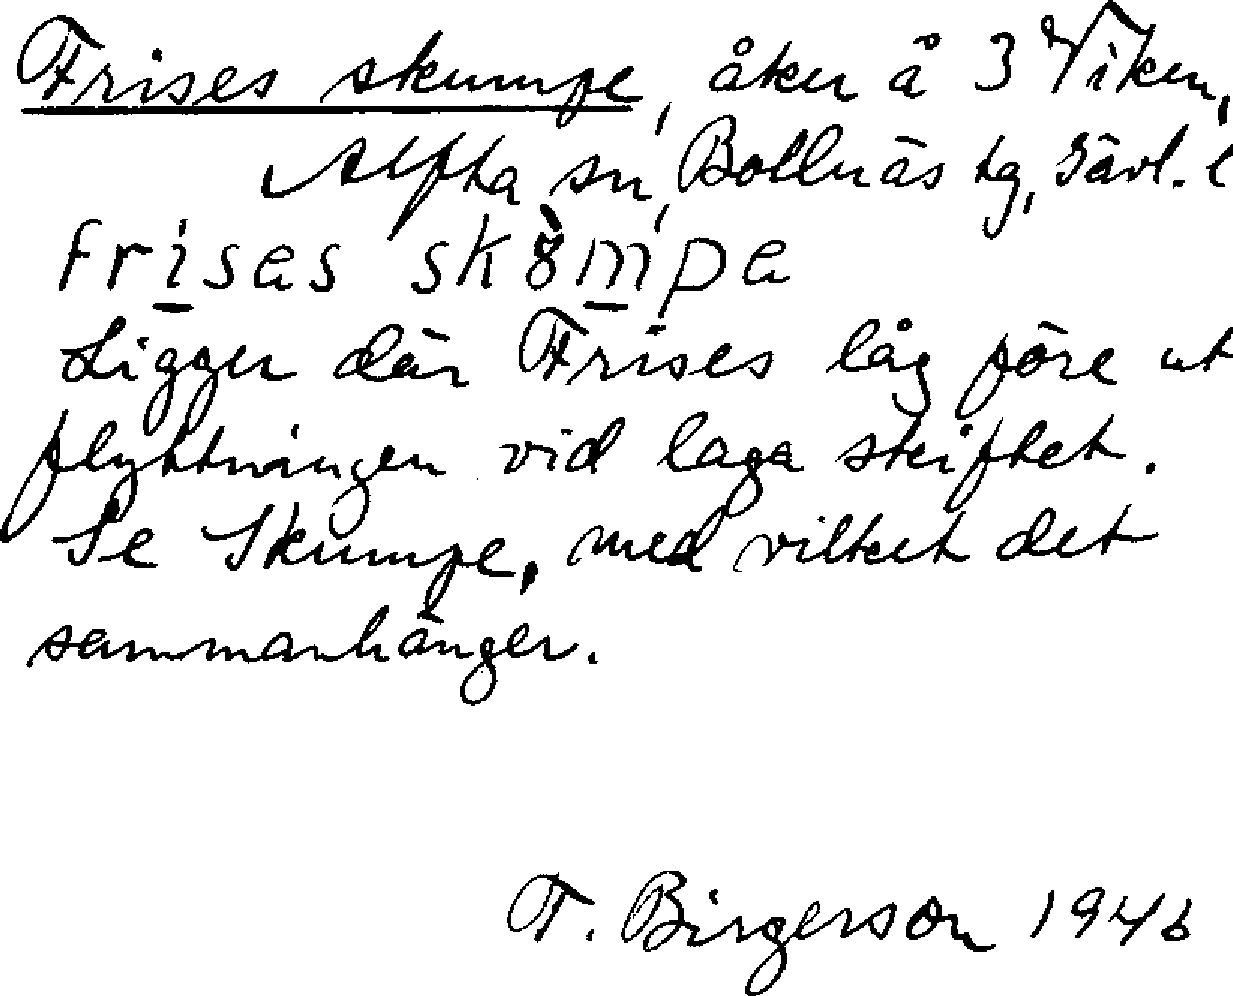 Frises skumpe, åker å 3 Viken,
Alfta sn, Bollnäs tg, Gävl. l
frisas sk8̀mpa
Ligger där Frises låg före ut
flyttningen vid laga skiftet.
Se Skumpe, med vilket det
sammanhänger.
T. Birgerson 1946